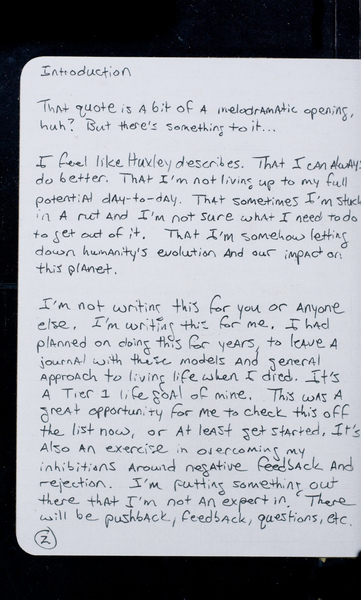 Introduction
That quote is a bit of a melodramatic opening,
huh? But there's something to it...
I feel like Huxley describes. That I can always
do better. That I'm not living up to my full
potential day-to-day. That sometimes I'm stuck
in a rut and I'm not sure what I need to do
to get out of it. That I'm somehow letting
down humanity's evolution and our impact on
this planet.
I'm not writing this for you or anyone
else. I'm writing this for me. I had
planned on doing this for years, to leave a
journal with these models and general
approach to living life when I died. It's
a Tier 1 life goal of mine. This was a
great opportunity for me to check this off
the list now, or at least get started. It's
also an exercise in overcoming my
inhibitions around negative feedback and
rejection. I'm putting something out
there that I'm not an expert in. There
will be pushback, feedback, questions, etc.
2